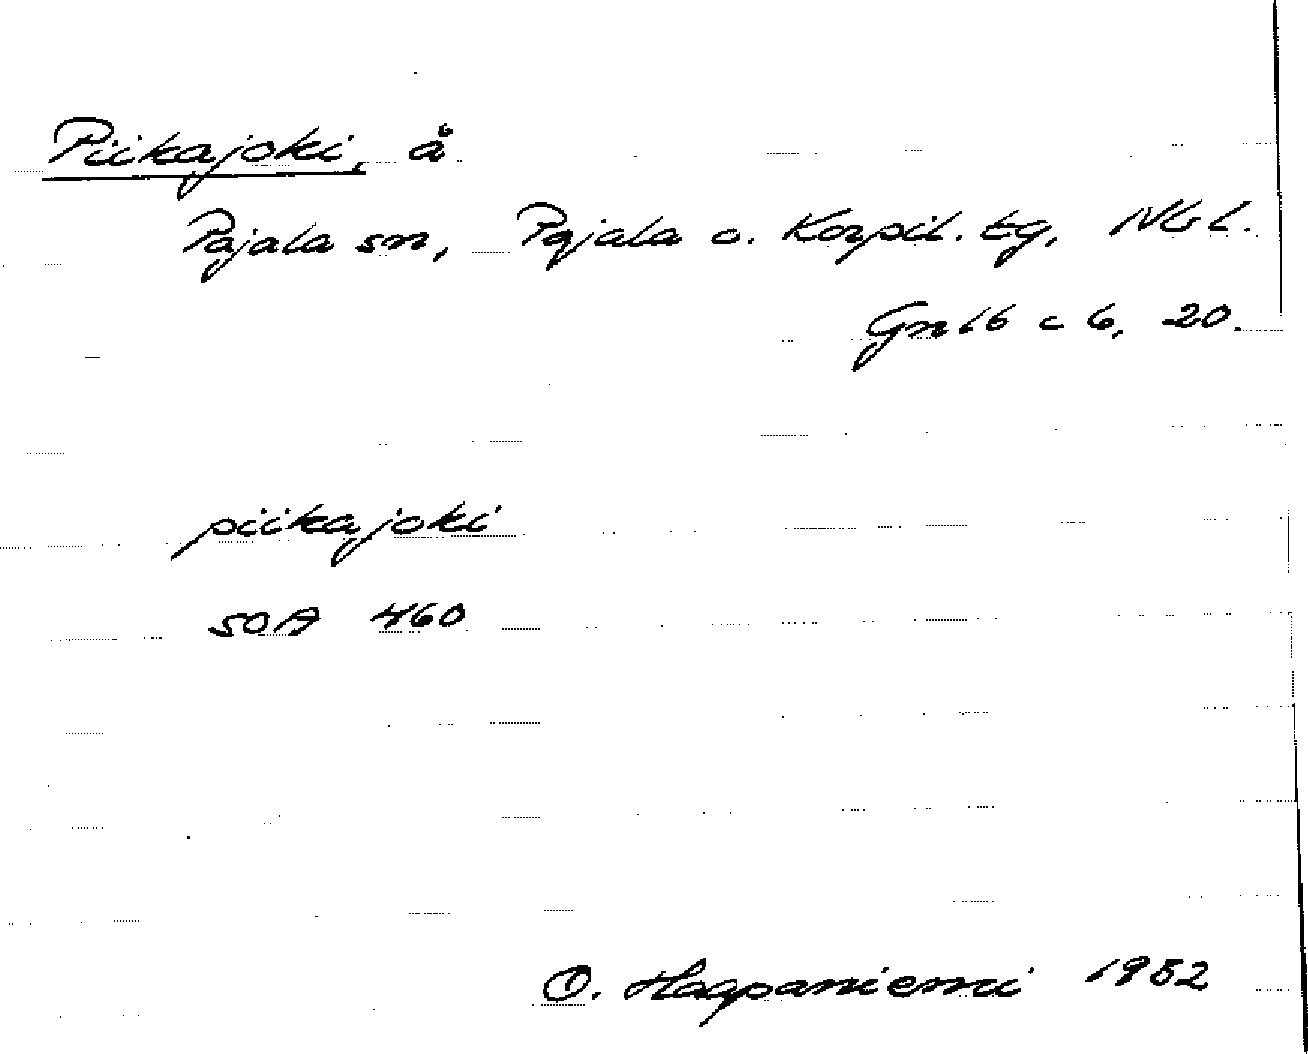 Piikajoki, å
Pajala sn, Pajala o. Korpil. tg, Nbl.
Gn 16 c 6, 20.
piikajoki
SOA 460
O. Haapaniemi 1982